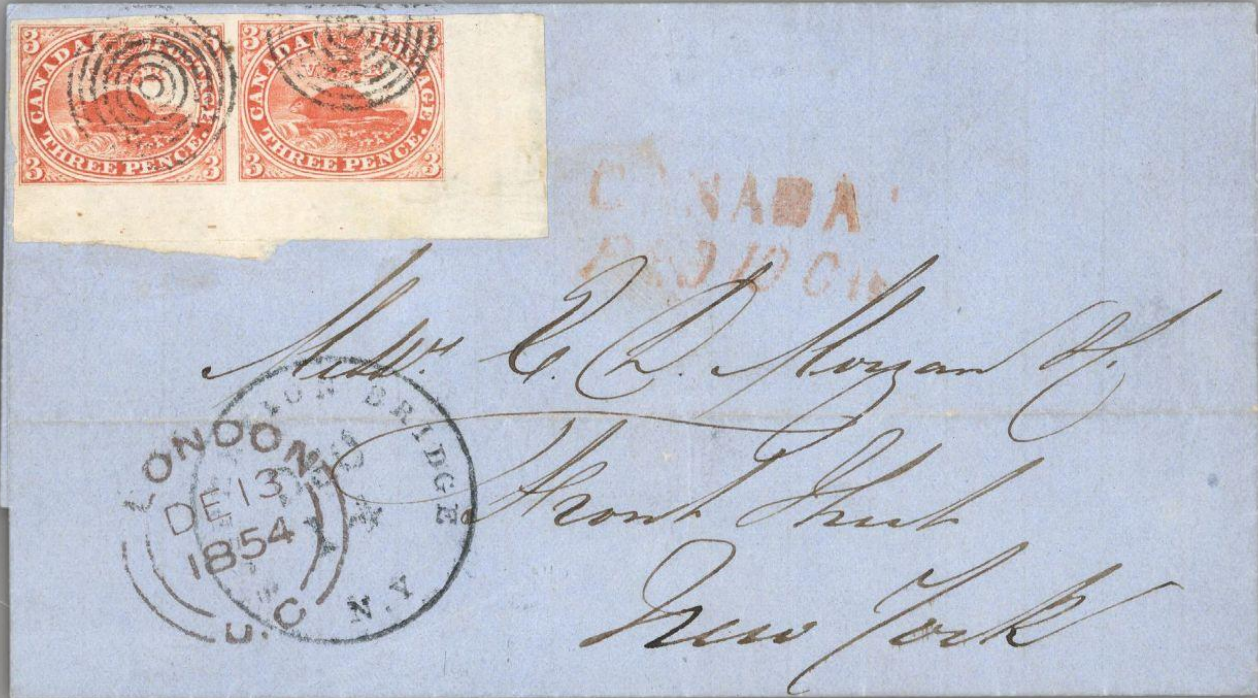 3 3
CANADA POSTAGE.
THREE PENCE.
3 3
3
CANADA POSTAGE.
THREE PENCE.
3 3
CANADA
10 Cts
Messrs. E. D. Morgan &
Front Street
New York
LONDON
DE 13
1854
U.C
BRIDGE
N.Y.